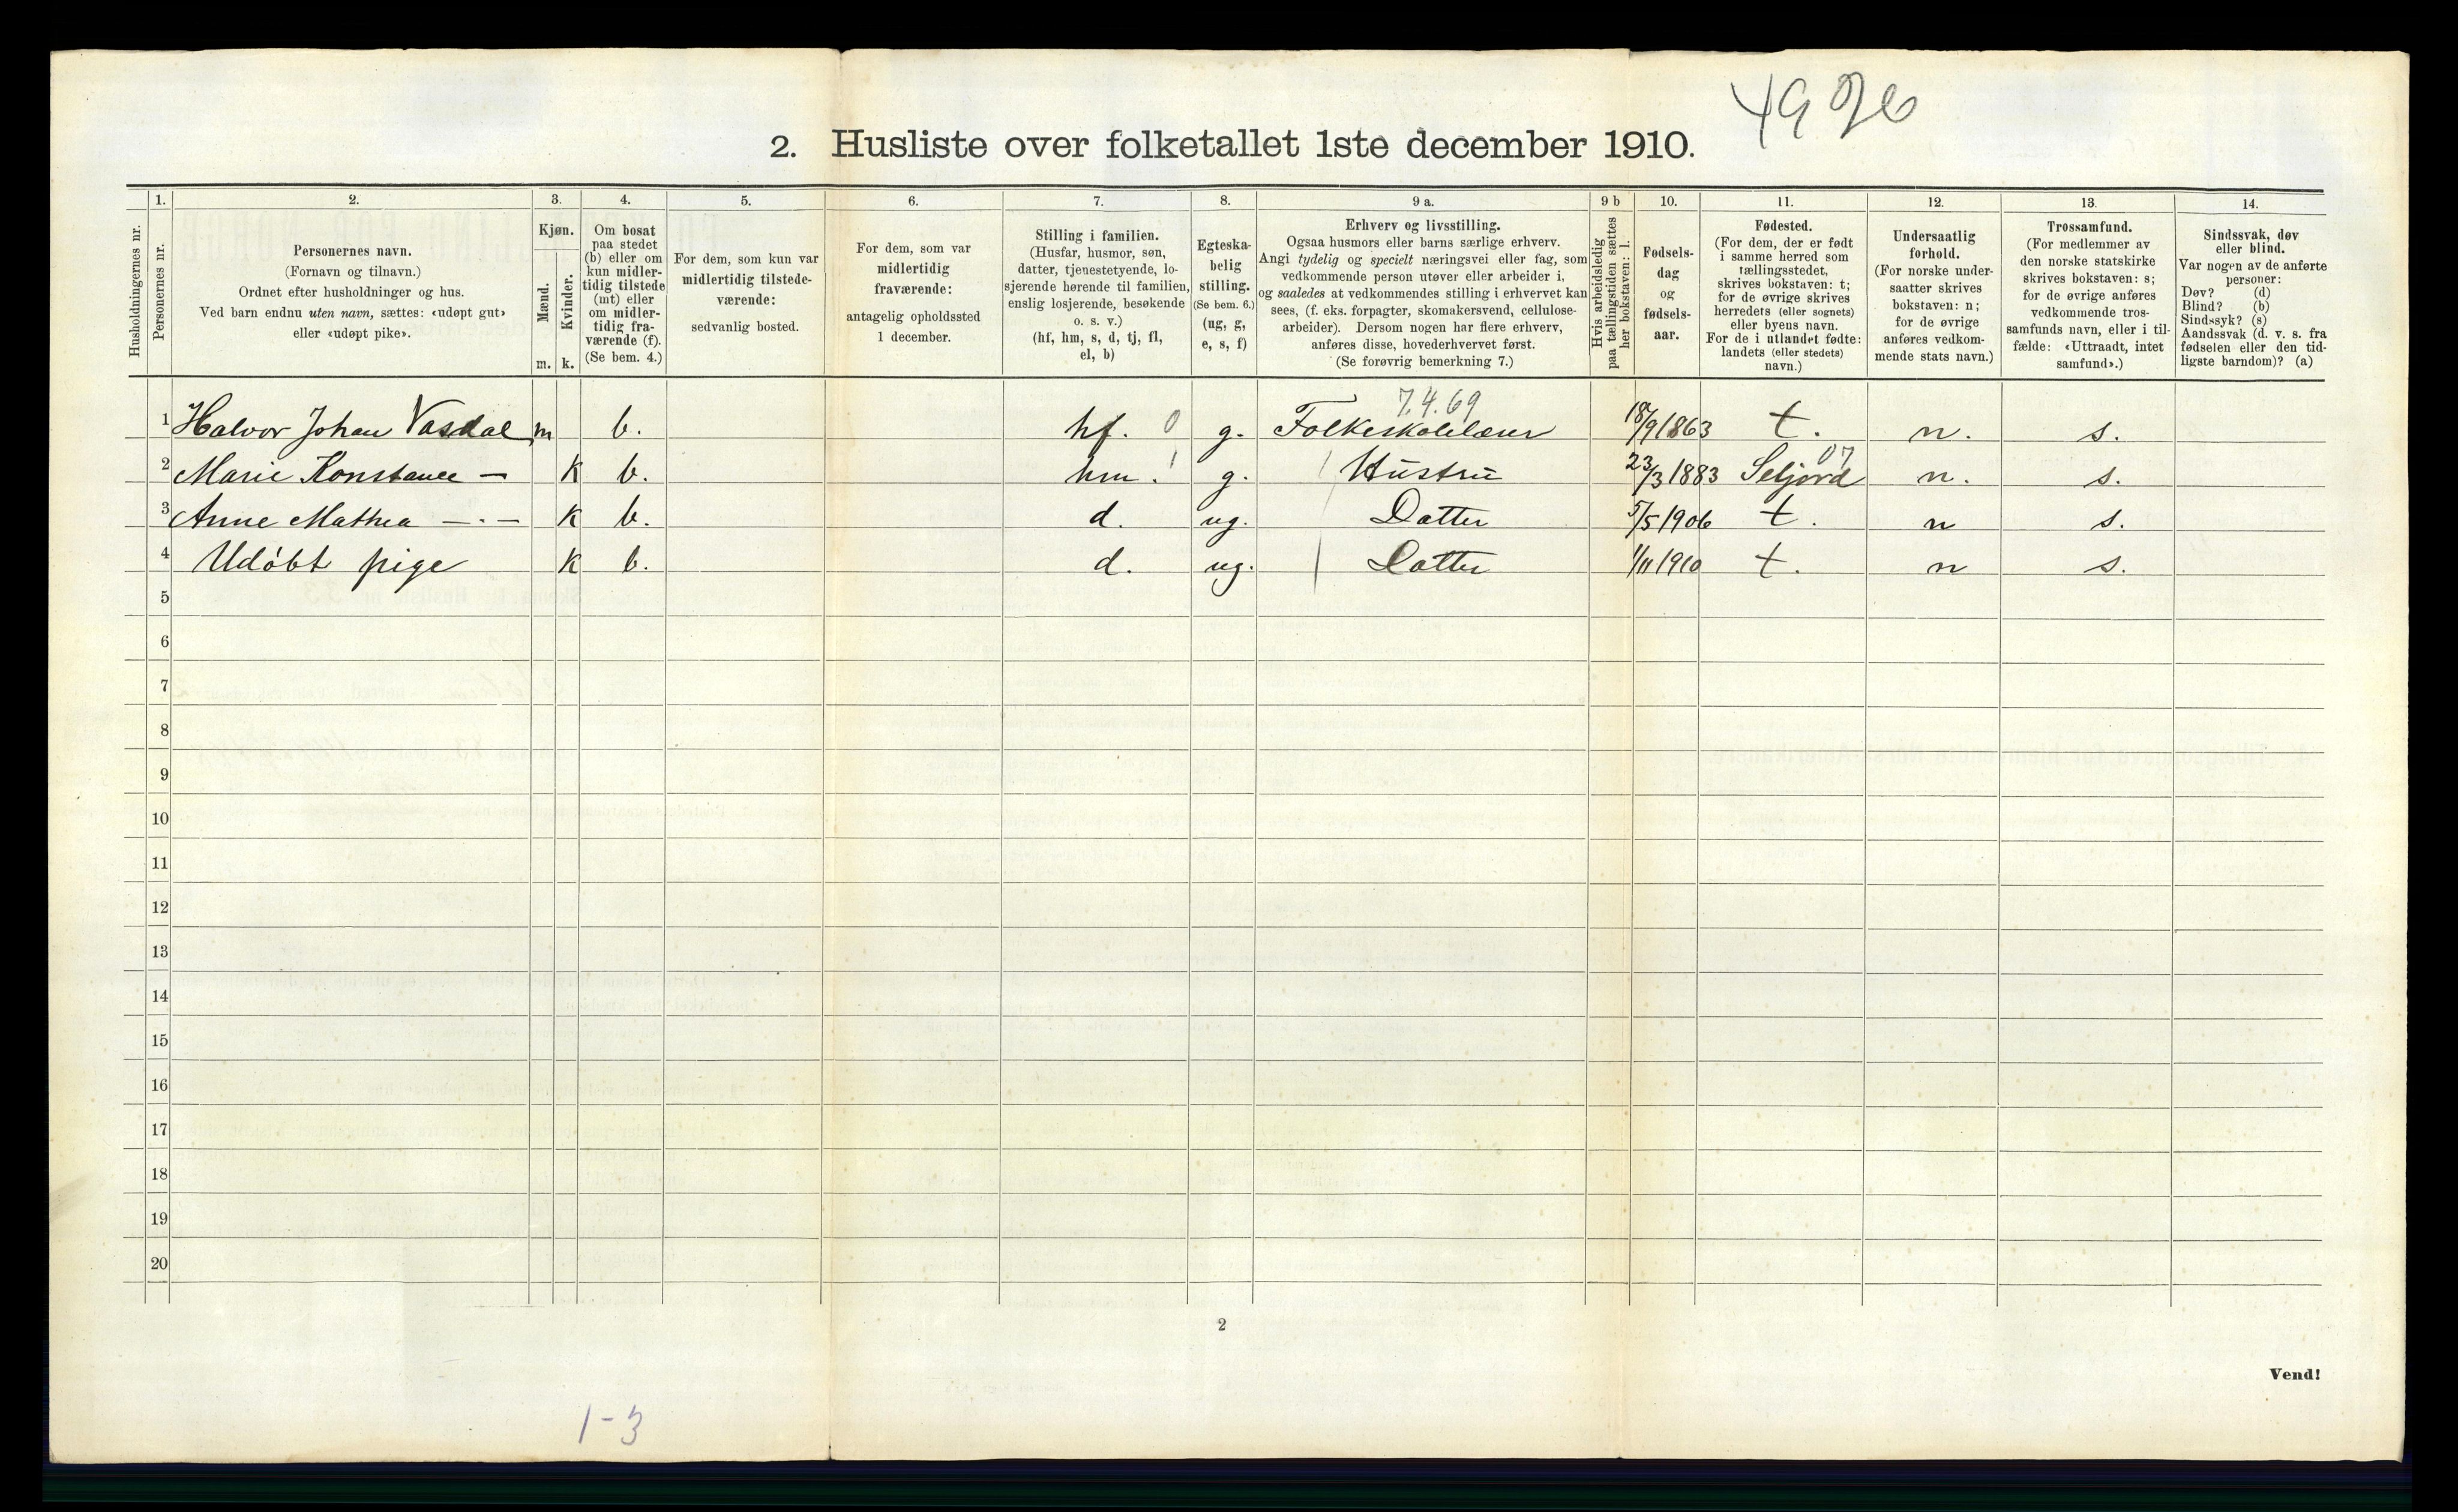 49
2. Husliste over folketallet 1ste december 1910.
Husholdningernes nr.
1.
Personernes nr.
2.
Personernes navn.
(Fornavn og tilnavn.)
Ordnet efter husholdninger og hus.
Ved barn endnu uten navn, sættes: «udøpt gut»
eller «udøpt pike».
3.
Kjøn.
Mænd.
Kvinder.
m. k.
4.
Om bosat
paa stedet
(b) eller om
kun midler-
tidig tilstede
(mt) eller
om midler-
tidig fra-
værende (f).
(Se bem. 4.)
5.
For dem, som kun var
midlertidig tilstede-
værende:
sedvanlig bosted.
6.
For dem, som var
midlertidig
fraværende:
antagelig opholdssted
1 december.
7.
Stilling i familien.
(Husfar, husmor, søn,
datter, tjenestetyende, lo-
sjerende hørende til familien,
enslig losjerende, besøkende
o. s. v.)
(hf, hm, s, d, tj, fl,
el, b)
8.
Egteska-
belig
stilling.
(Se bem. 6.)
(ug, g,
e, s, f)
9 a.
Erhverv og livsstilling.
Ogsaa husmors eller barns særlige erhverv.
Angi tydelig og specielt næringsvei eller fag, som
vedkommende person utøver eller arbeider i,
og saaledes at vedkommendes stilling i erhvervet kan
sees, (f. eks. forpagter, skomakersvend, cellulose-
arbeider). Dersom nogen har flere erhverv,
anføres disse, hovederhvervet først.
(Se forøvrig bemerkning 7.)
9 b
Hvis arbeidsledig
paa tællingstiden sættes
her bokstaven: l.
10.
Fødsels-
dag
og
fødsels-
aar.
11.
Fødested.
(For dem, der er født
i samme herred som
tællingsstedet,
skrives bokstaven: t;
for de øvrige skrives
herredets (eller sognets)
eller byens navn.
For de i utlandet fødte:
landets (eller stedets)
navn.)
12.
Undersaatlig
forhold.
(For norske under-
saatter skrives
bokstaven: n;
for de øvrige
anføres vedkom-
mende stats navn.)
13.
Trossamfund.
(For medlemmer av
den norske statskirke
skrives bokstaven: s;
for de øvrige anføres
vedkommende tros-
samfunds navn, eller i til-
fælde: «Uttraadt, intet
samfund».)
14.
Sindssvak, døv
eller blind.
Var nogen av de anførte
personer:
Døv? (d)
Blind? (b)
Sindssyk? (s)
Aandssvak (d. v. s. fra
fødselen eller den tid-
ligste barndom)? (a)
7.4.69
1 Halvor Johan Vasdal m b. hf. 0 g. Folkeskolelærer 18/9 1863 t. n. s.
07
2 Marie Konstance — K b. hm. 1 g. Hustru 23/3 1883 Seljord n. s.
3 Anne Mathea —.— K b. d. ug. Datter 5/5 1906 t. n s.
4 Udöbt pige K b. d. ug. Datter 1/11 1910 t. n s.
5
6
7
8
9
10
11
12
13
14
15
16
17
18
19
20
2
Vend!
1-3